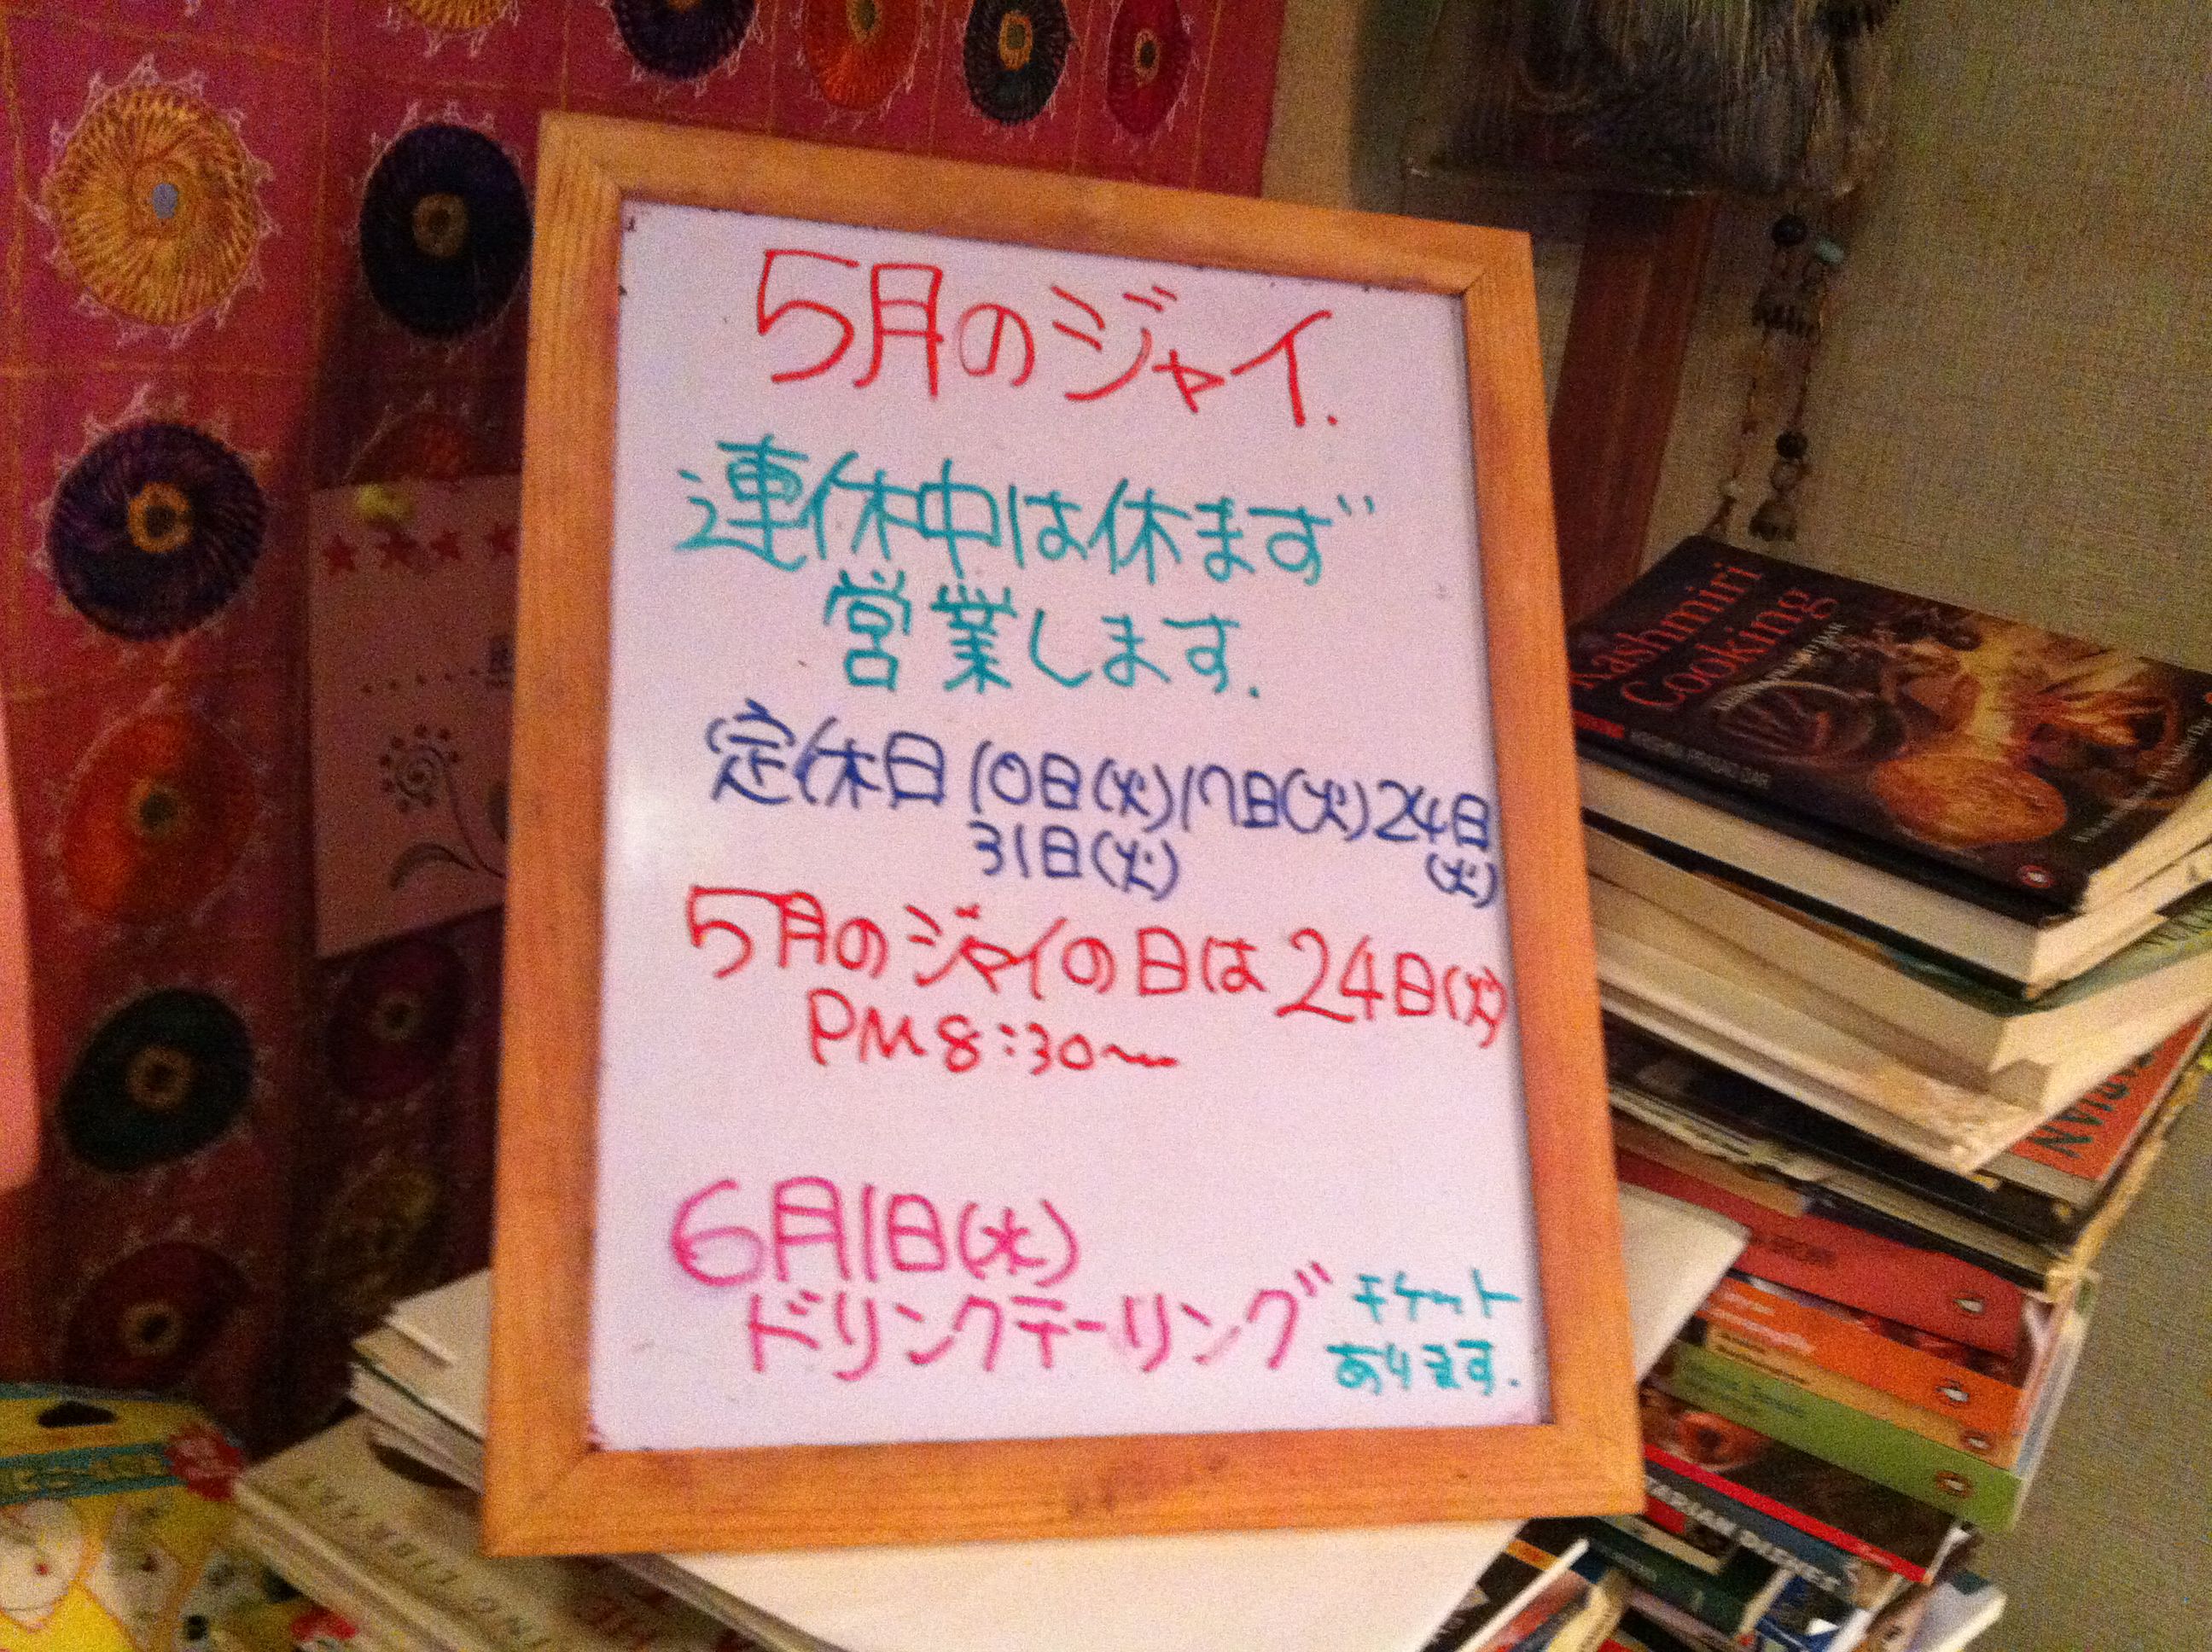 5月のジャイ.
連休中は休まず
営業します.
定休日 10日(火)17日(火)24日
(火)
31日(火)
5月のジャイの日は24日(火)
PM8:30〜
6月1日(水)
ドリンクテーリング
チケット
あります.
Kashmiri
Cooking
KRISHNA PRASAD DAR